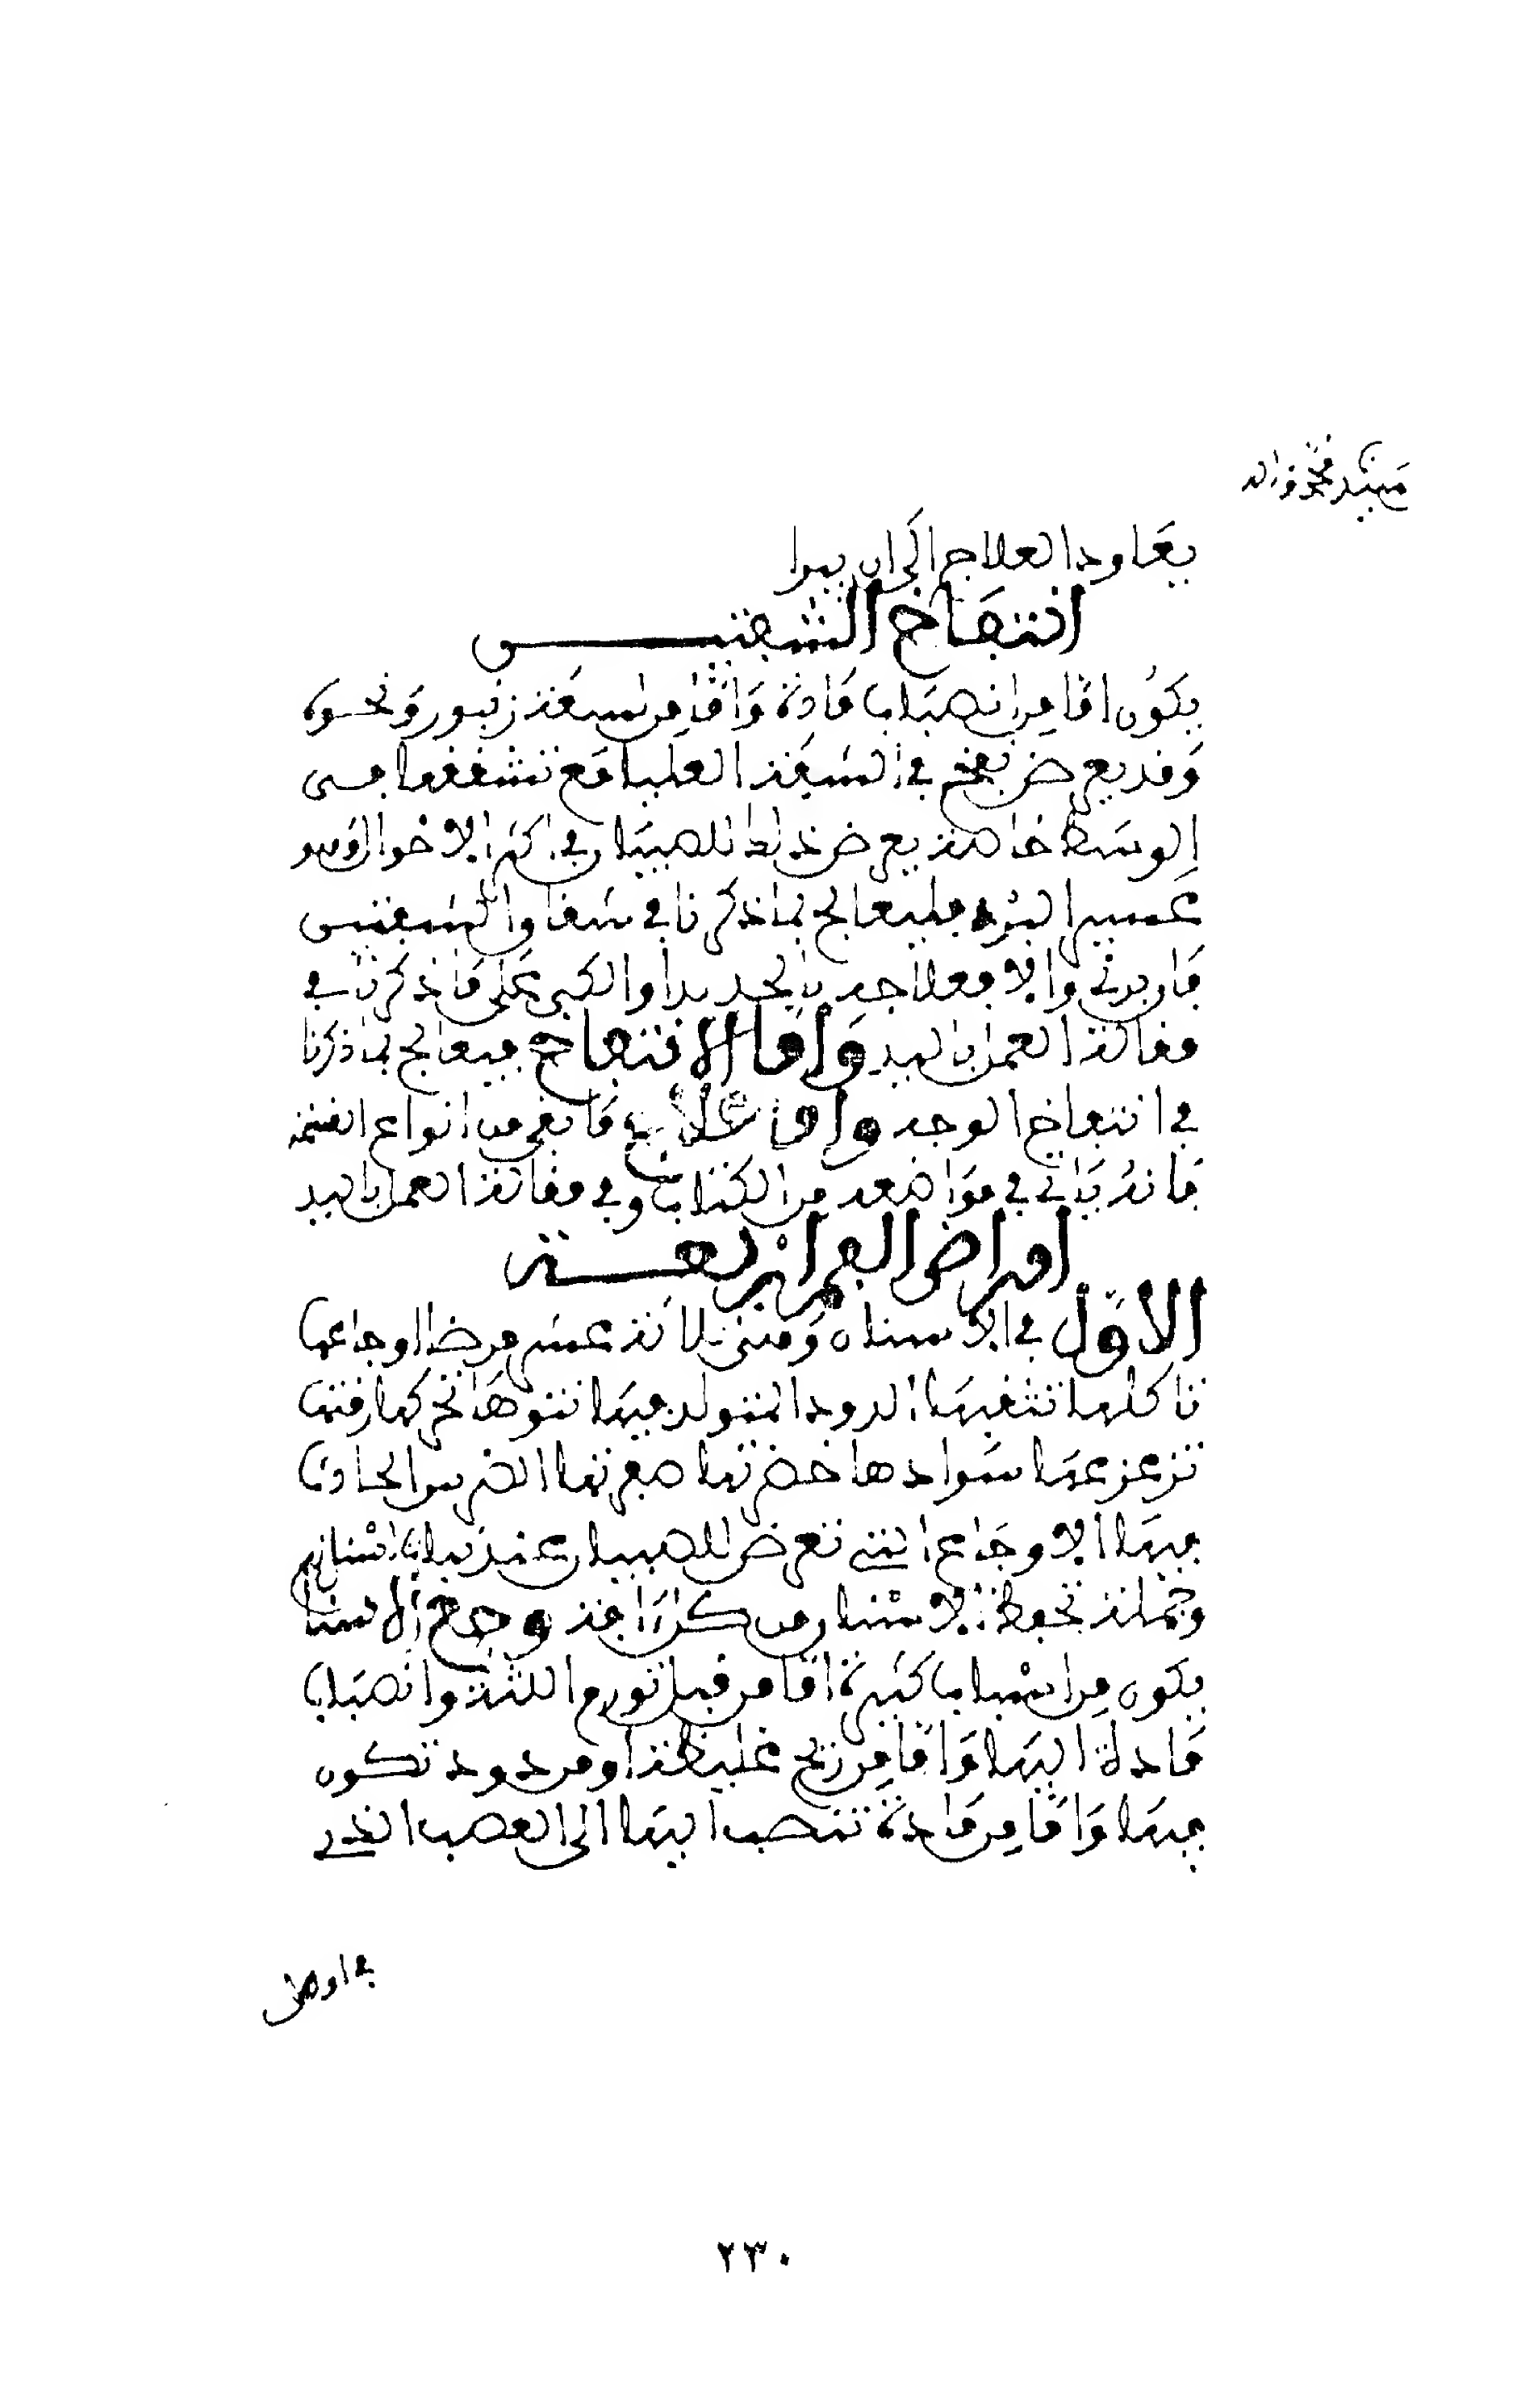 يعاود العلاج الى ان يبرا
انتفاخ الشفتين
يكون اما من انصباب مادة واما من لسعة زنبور ونحوه
وقد يعرض نفخ في الشفة العليا مع تشققها من
الوسط خاصة يعرض ذلك للصبيان في اكثر الاحوال وهو
عسير البرء فليعالج بما ذكرنا في شقاق الشفتين
فان برئ والا فعلاجه بالحديد او الكي على ما ذكرنا في
مقالة العمل باليد واما الانتفاخ فيعالج بما ذكرنا
في انتفاخ الوجه واما علاج ما بقي من انواع
فانه ياتي في مواضعه من الكتاب وفي مقالة العمل باليد
امراض الفم اربعة
الاول في الاسنان وهي ثلاثة عشر مرضا اوجاعها
تاكلها تثقبها الدود المتولد فيها نتوها تحركها رقتها
تزعزعها سوادها خضرتها صفرتها الضرس الحادث
فيها الاوجاع التي تعرض للصبيان عند نبات اسنانهم
وجملة تحفظ الاسنان من كل افة وجع الاسنان
يكون من اسباب كثيرة اما من قبل تورم اللثة وانصباب
مادة اليها واما من ريح غليظة او من دود تكون
فيها واما من مادة تنصب اليها الى العصب الذي
في اوصل
٢٣٠